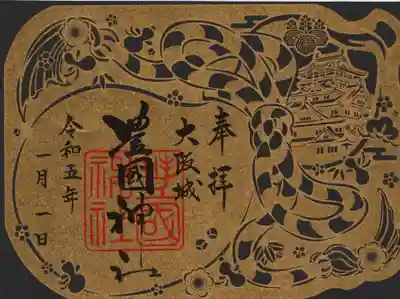 奉拝
大阪城
豊國神社
豊國神社
令和五年
一月一日